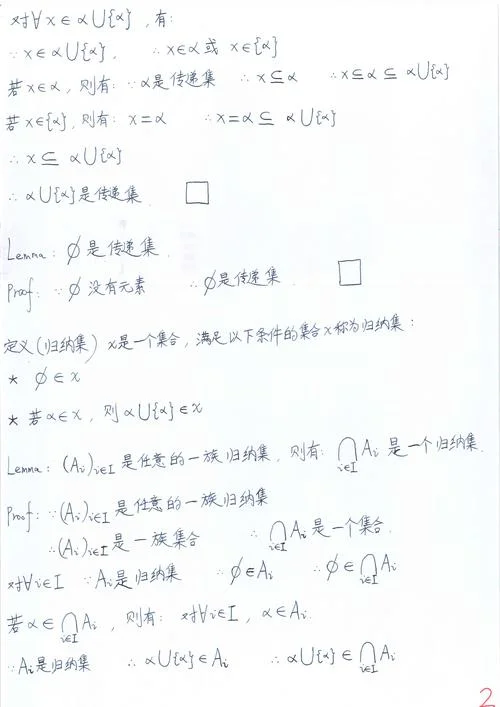 对∀x∈α∪{α},有:
∵x∈α∪{α}, ∴x∈α或 x∈{α}
若x∈α,则有:∵α是传递集 ∴x⊆α ∴x⊆α⊆ α∪{α}
若x∈{α},则有:x=α ∴x=α⊆ α∪{α}
∴x⊆ α∪{α}
∴α∪{α}是传递集. □
Lemma: ∅是传递集.
Proof: ∵∅没有元素 ∴∅是传递集. □
定义(归纳集) x是一个集合,满足以下条件的集合x称为归纳集:
* ∅∈x
* 若α∈x,则α∪{α}∈x
Lemma: (Ai)i∈I是任意的一族归纳集,则有: ⋂i∈I Ai 是一个归纳集.
Proof: ∵(Ai)i∈I是任意的一族归纳集
∴(Ai)i∈I是一族集合 ∴⋂i∈I Ai是一个集合.
对∀i∈I ∵Ai是归纳集 ∴∅∈Ai ∴∅∈⋂i∈I Ai
若α∈⋂i∈I Ai,则有: 对∀i∈I, α∈Ai.
∵Ai是归纳集 ∴α∪{α}∈Ai ∴α∪{α}∈⋂i∈I Ai
2